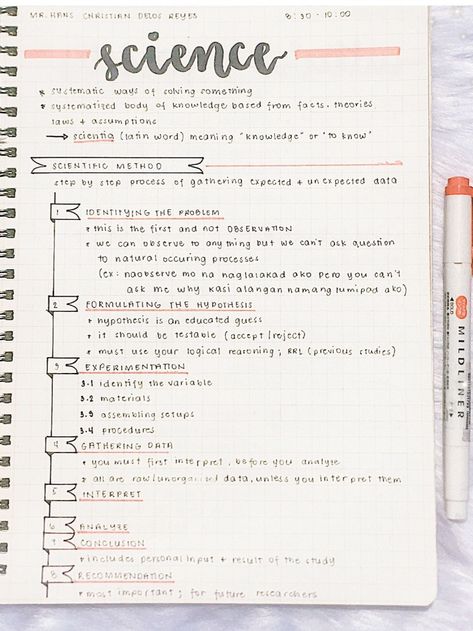 MR. HANS CHRISTIAN DELOS REYES 8:30 - 10:00
science
* systematic ways of solving something
* systematized body of knowledge based from facts, theories
laws + assumptions
→ scientia (latin word) meaning "knowledge" or "to know"
SCIENTIFIC METHOD
step by step process of gathering expected + unexpected data
1 IDENTIFYING THE PROBLEM
* this is the first and not OBSERVATION
* we can observe to anything but we can't ask question
to natural occuring processes
(ex: naobserve mo na naglalakad ako pero you can't
ask me why kasi alangan namang lumipad ako)
2 FORMULATING THE HYPOTHESIS
* hypothesis is an educated guess
* it should be testable (accept/reject)
* must use your logical reasoning; RRL (previous studies)
3 EXPERIMENTATION
3.1 identify the variable
3.2 materials
3.3 assembling setups
3.4 procedures
4 GATHERING DATA
* you must first interpret, before you analyze
* all are raw/unorganised data, unless you interpret them
5 INTERPRET
6 ANALYZE
7 CONCLUSION
* includes personal input + result of the study
8 RECOMMENDATION
* most important; for future researchers
MILDLINER